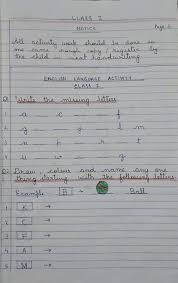 CLASS I
NOTICE
Page 1
All activity work should be done in
one same rough copy / register by
the child in neat handwriting.
ENGLISH LANGUAGE ACTIVITY
CLASS I
Q1 Write the missing letters
a c f
g l m
p r t
u w
Q2 Draw, colour and name any one
thing starting with the following letters
Example B → Ball
1 A →
2 C →
3 F →
4 A →
5 M →